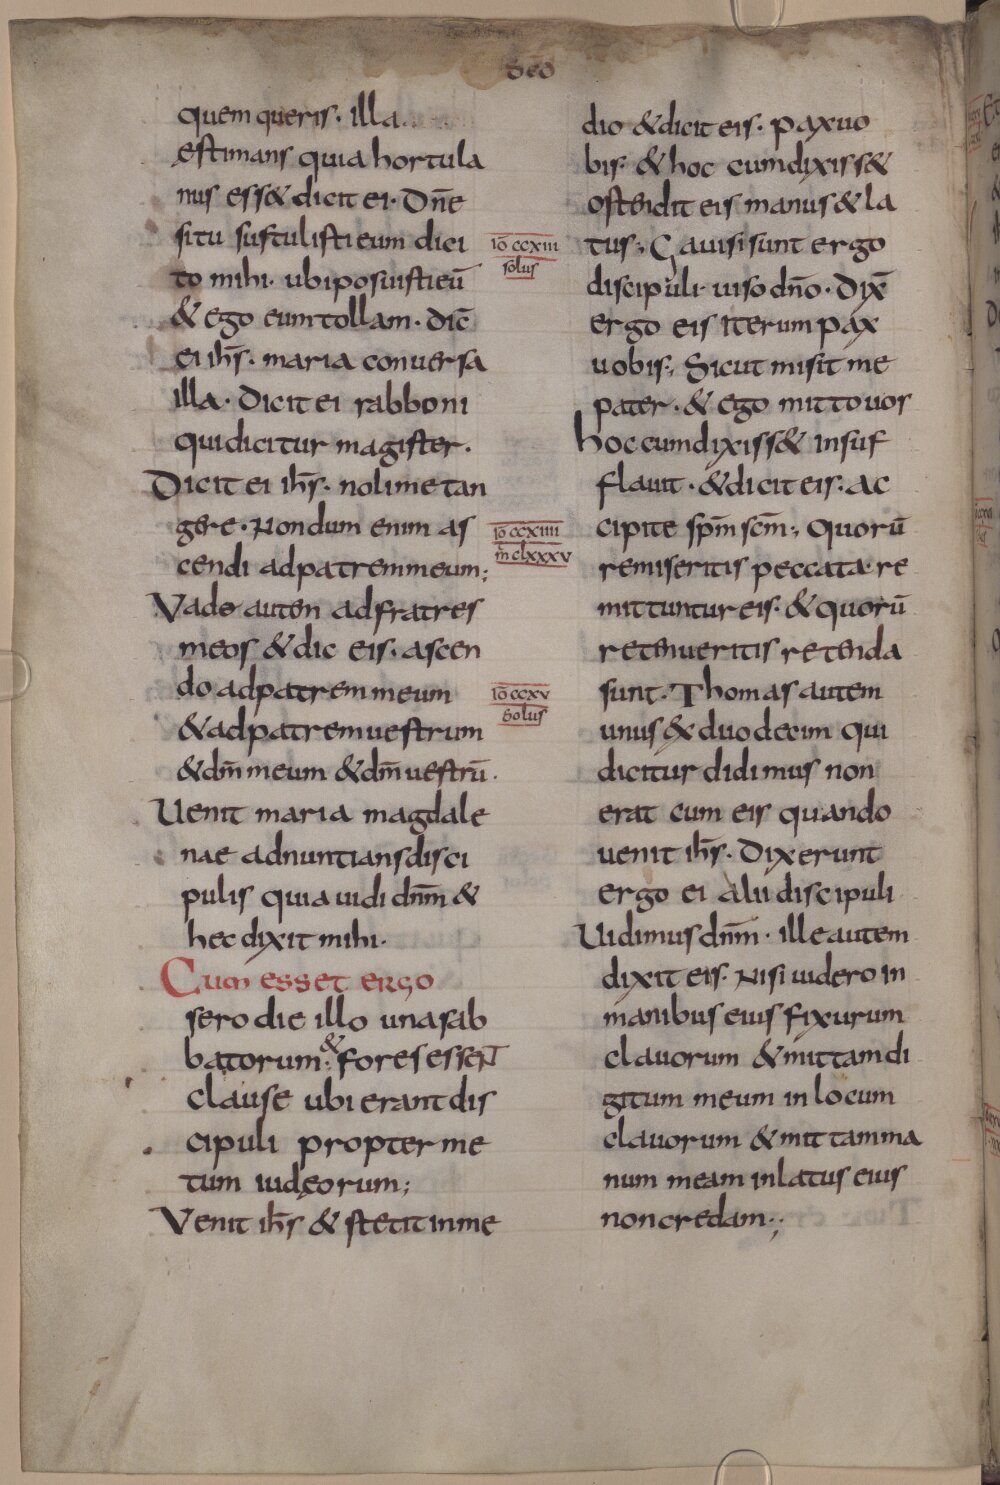 seo
quem queris· illa
estimans quia hortula
nus ess& dicit ei· Dn̄e
si tu sustulisti eum dici
to mihi· ubi posuisti eū
& ego eum tollam· dic̄
ei ih̄s· maria conuersa
illa· Dicit ei rabboni
qui dicitur magister·
Dicit ei ih̄s· noli me tan
gere· Nondum enim as
cendi ad patrem meum;
Vade autem ad fratres
meos & dic eis· ascen
do ad patrem meum
& ad patrem uestrum
& dm̄ meum & dm̄ uestrū·
Uenit maria magdale
nae adnuntians disci
pulis quia uidi dnm̄ &
hec dixit mihi·
Cum esset ergo
sero die illo una sab
batorum; & fores essent
clause ubi erant dis
cipuli propter me
tum iudęorum;
Venit ih̄s & stetit in me
iō ccxiii
solus
iō ccxiiii
m̄ clxxxv
iō ccxv
solus
dio & dicit eis· pax uo
bis· & hoc cum dixiss&
ostendit eis manus & la
tus; Gauisi sunt ergo
discipuli uiso dn̄o· Dix̄
ergo eis iterum pax
uobis; Sicut misit me
pater· & ego mitto uos
hoc cum dixiss& insuf
flauit· & dicit eis· Ac
cipite sp̄m sc̄m; Quorū
remiseritis peccata re
mittuntur eis· & quorū
retenueritis retenda
sunt· Thomas autem
unus ex duodecim qui
dicitur didimus non
erat cum eis quando
uenit ih̄s· Dixerunt
ergo ei alii discipuli
Uidimus dnm̄· ille autem
dixit eis· Nisi uidero in
manibus eius fixurum
clauorum & mittam di
gitum meum in locum
clauorum & mittam ma
num meam in latus eius
non credam;